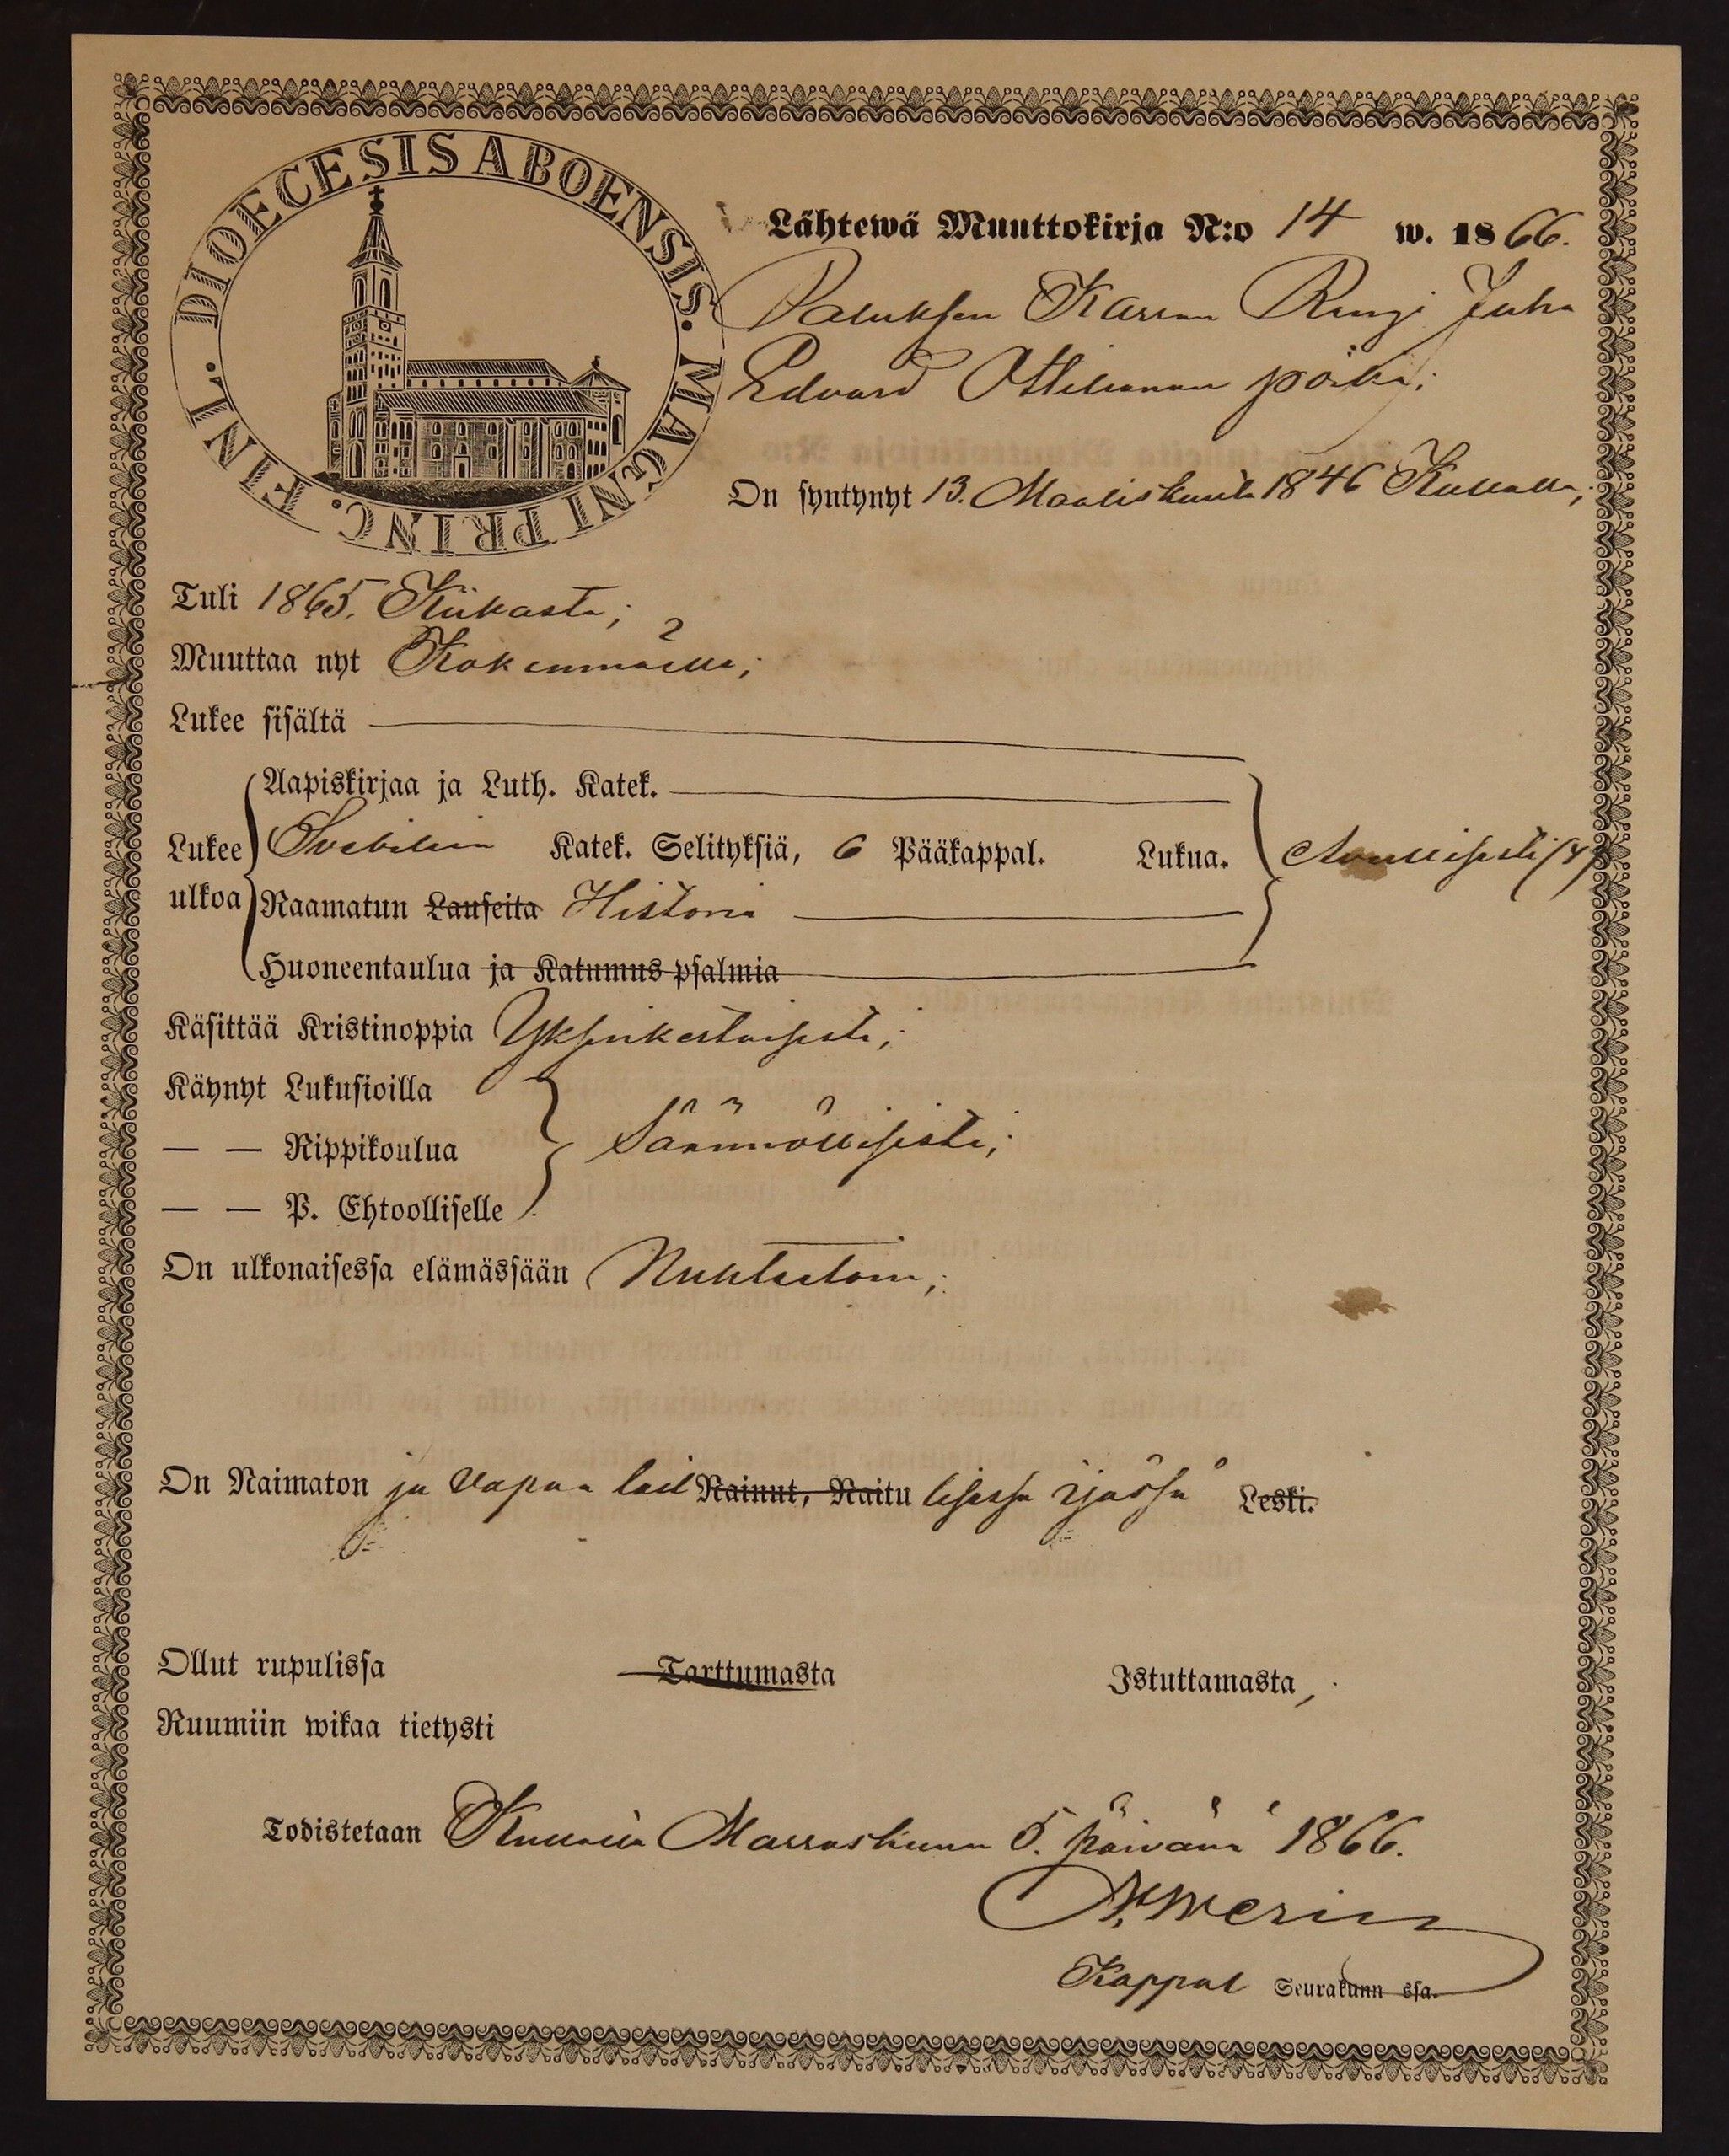 DIOECESIS ABOENSIS. MAGNI PRINC. FINL.
Lähtewä Muuttokirja N:o 14 w. 1866.
Karran Juha
Edvard poika;
On syntynyt 13. Maaliskuuta 1846 Kullalla;
Tuli 1865. Kiikasta;
Muuttaa nyt Kokemmäelle;
Lukee sisältä
Aapiskirjaa ja Luth. Katek.
Lukee ulkoa
Svebiliun Katek. Selityksiä, 6 Pääkappal. Lukua. Avullisesti
Raamatun Lauseita Historia
Huoneentaulua ja Katumus-psalmia
Käsittää Kristinoppia Yksinkertaisesti;
Käynyt Lukusioilla
— — Rippikoulua Säännöllisesti;
— — P. Ehtoolliselle
On ulkonaisessa elämässään Nuhteeton;
On Naimaton ja vapaa lail Nainut, Naitu lisessa ijässä Leski.
Ollut rupulissa Tarttumasta Istuttamasta,
Ruumiin wikaa tietysti
Todistetaan Kullalla Marraskuun 5. päivänä 1866.
Kappal Seurakunn ssa.